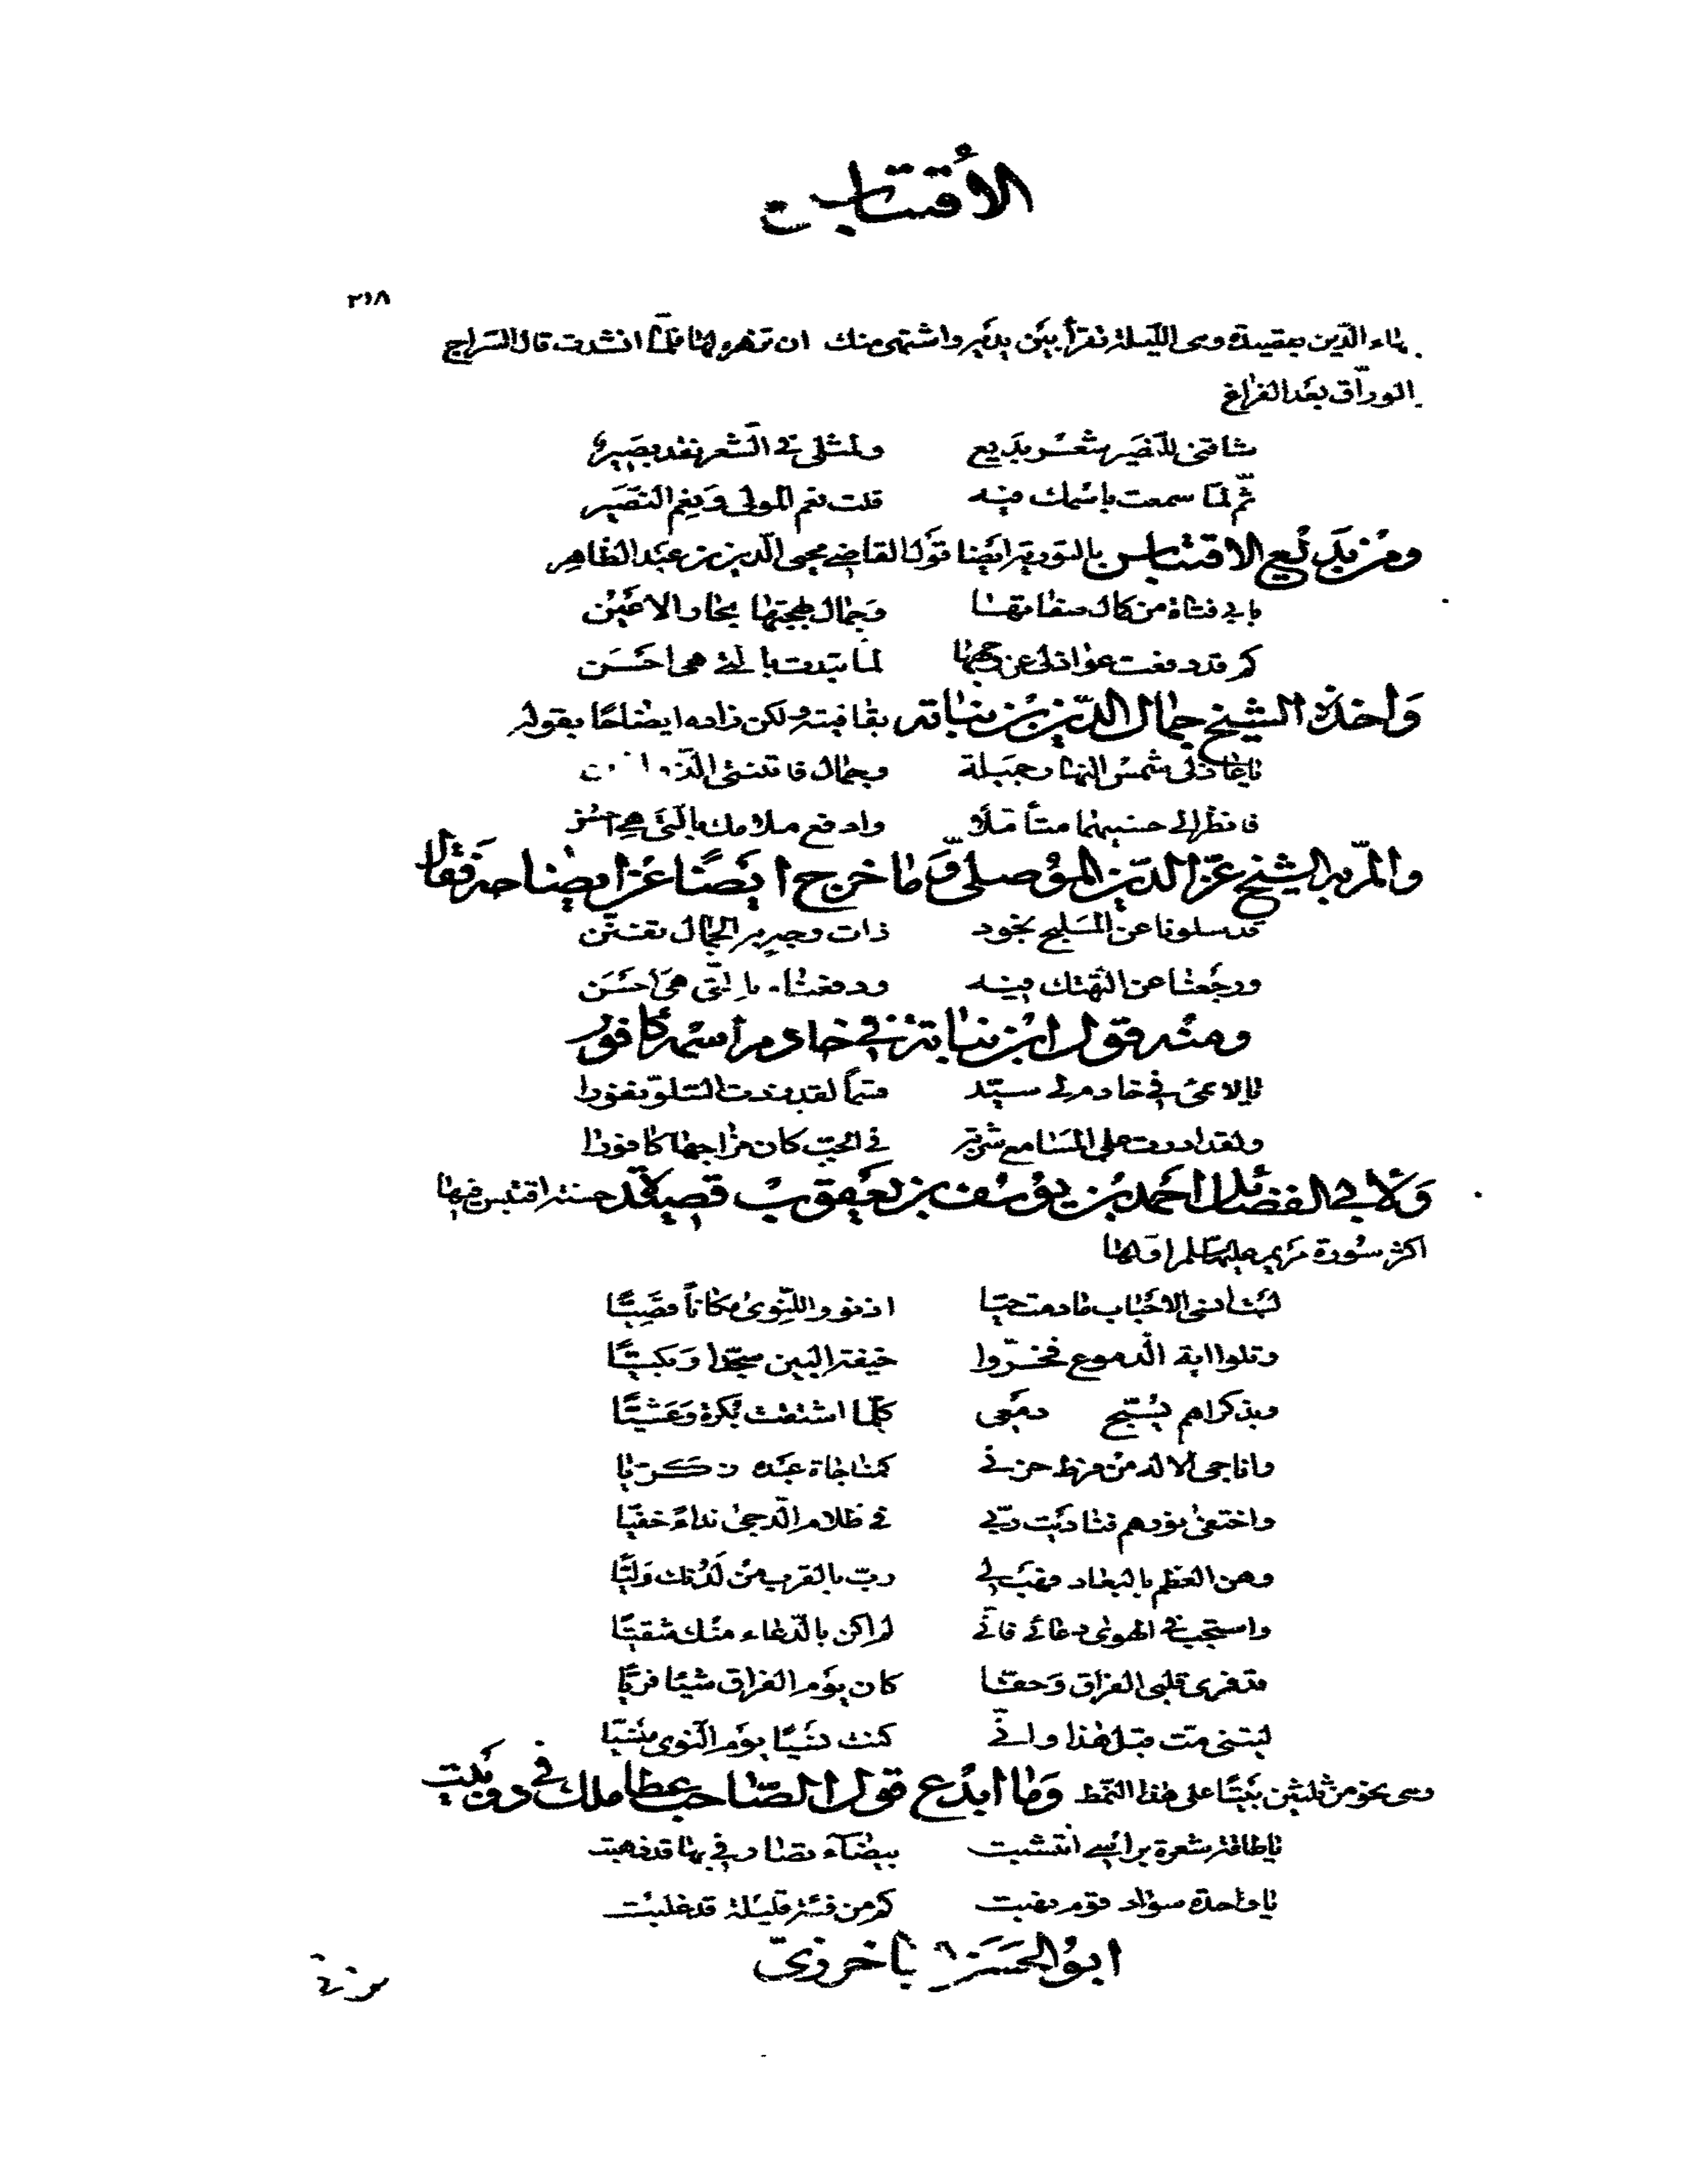 الأقتباس
٢١٨
بهاء الدّين بقصيدة وهى اللّيلة تقرأ بين يديه واشتهى منك ان تزهره لها فلمّا انشدت قال السّراج
الورّاق بعد الفراغ
شاقنى للنّصير شعر بديع ولمثلى فى الشّعر نقد بصير
ثمّ لمّا سمعت باسمك فيه قلت نعم المولى ونعم النّصير
ومن بديع الاقتباس بالتورية ايضا قول القاضى محيى الدّين بن عبد الظاهر
بابى فتاة من كمال صفاتها وجمال بهجتها يحار الاعين
كم قد دفعت عواذلى عن وجهها لما تبدت بالتى هى احسن
واخذه الشيخ جمال الدّين بن نباته بقافيته ولكن زاده ايضاحا بقوله
يا عاذلى شمس النهار جميلة وجمال فاتنتى
فانظر الى حسنيهما متأمّلا وادفع ملامك بالّتى هى احسن
والمّ به الشيخ عزّ الدّين الموصلى وما خرج ايضًا عن ايضاحه فقال
قد سلونا عن المليح بخود ذات وجه به الجمال تفنّن
ورجعنا عن التّهتك فيه ودفعناه بالّتى هى احسن
ومنه قول ابن نباتة فى خادم اسمه كافور
يا لائمى فى خادم لى سيّد قسمًا لقد زدت السّلوّ نفورا
ولقد ادرت على المسامع شربة فى الحبّ كان مزاجها كافورا
ولأبى الفضائل احمد بن يوسف بن يعقوب قصيدة حسنة اقتبس فيها
اكثر سورة مريم عليها السّلم اوّلها
لست انسى الاحباب ما دمت حيّا اذ نووا للنّوى مكانًا قصيًّا
وتلوا اية الدّموع فخرّوا خيفة البين سجّدا وبكيًّا
وبذكراهم يسبّح دمعى كلّما اشتقت بكرة وعشيًّا
واناجى الاله من فرط حزنى كمناجاة عبده زكريّا
واختفى نورهم فناديت ربّى فى ظلام الدّجى نداءً خفيّا
وهن العظم بالبعاد فهب لى ربّ بالقرب من لدنك وليًّا
واستجب فى الهوى دعائى فانّى لم اكن بالدّعاء منك شقيّا
قد فرى قلبى الفراق وحقّا كان يوم الفراق شيئا فريّا
ليتنى متّ قبل هذا وانّى كنت نسيًا يوم النّوى منسيّا
وهى نحو من ثلثين بيتًا على هذا النّمط وما ابدع قول الصّاحب عطا ملك فى دوبيت
يا طاقة شعرة برأسى انتشبت بيضاء
يا واحدة سواد قوم نهبت كم من فئة قليلة قد غلبت
ابو الحسن باخرزىّ